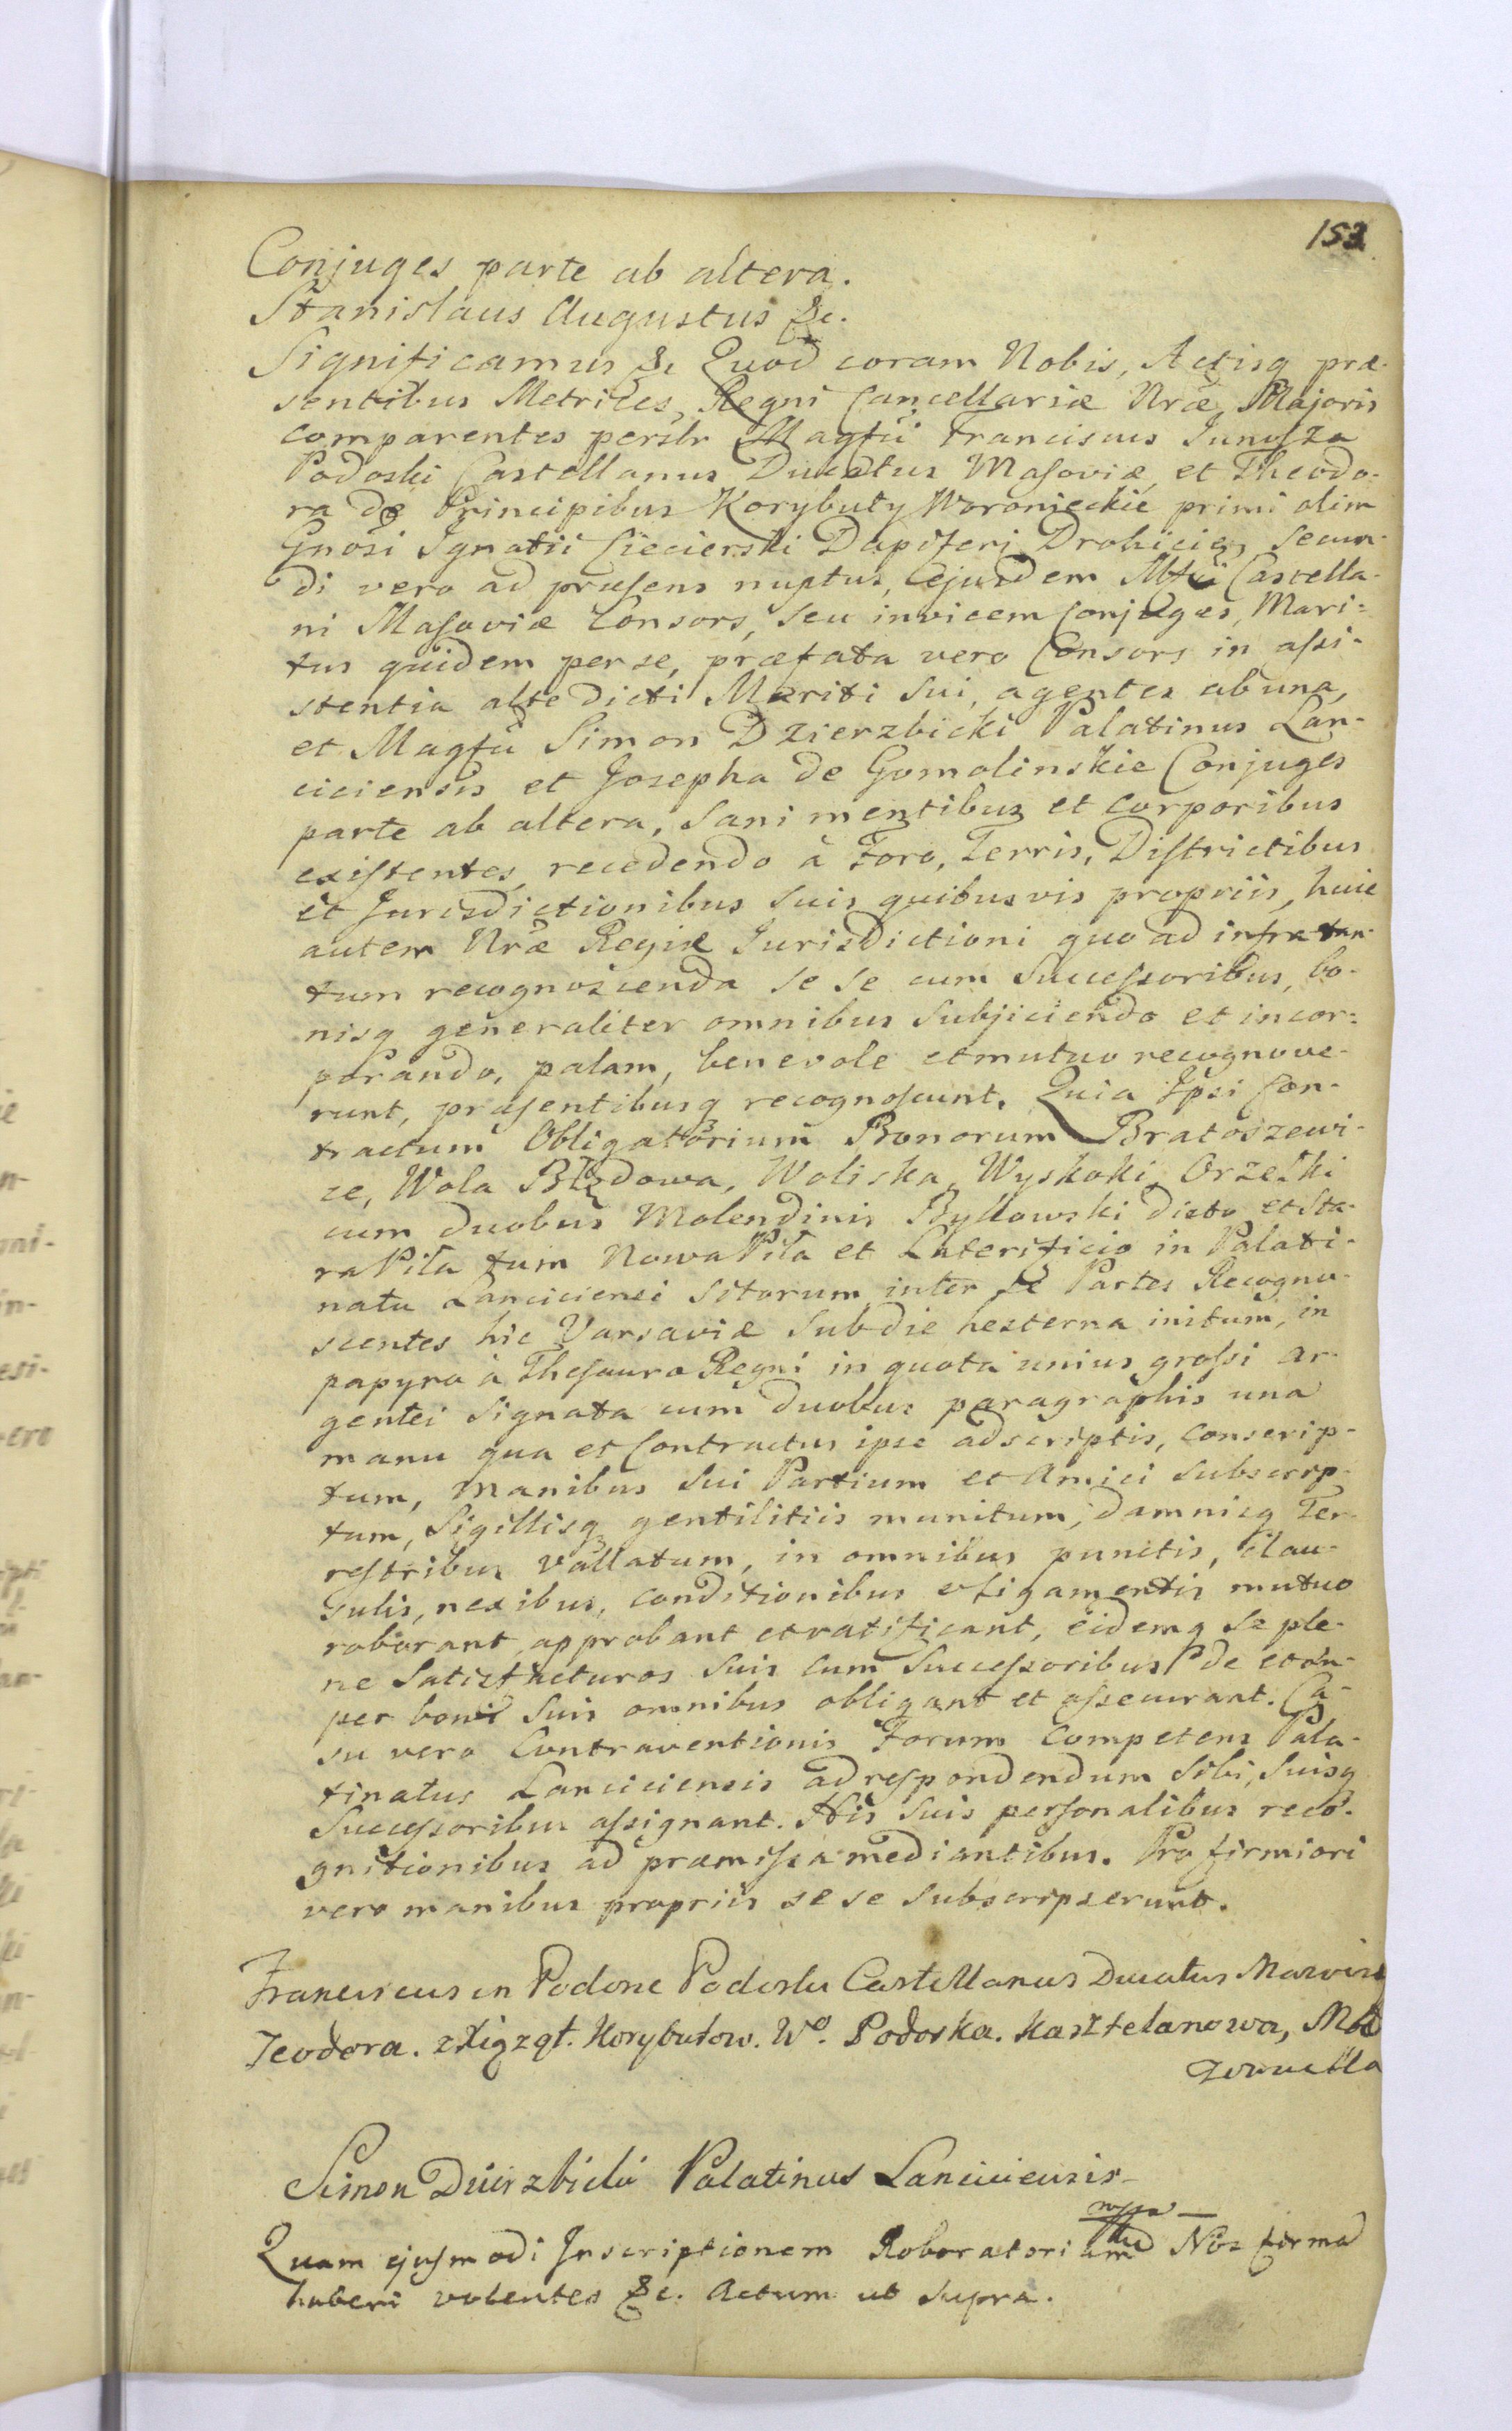 153
Conjuges parte ab altera.
Stanislaus Augustus &c.
Significamus &c Quod coram Nobis, Actisq præ-
sentibus Metrices Regni Cancellariæ Nræ Majoris
comparentes persłr Magfci Franciscus Junosza
Podoski Castellanus Ducatus Masoviæ, et Theodo-
ra de Principibus Korybuty Woronieckie primi olim
Gnosi Ignatii Ciecierski Dapiferi Drohicien, Secun-
di vero ad præsens nuptus, ejusdem Mfci Castella-
ni Masoviæ Consors, seu invicem Conjuges, Mari-
tus quidem per se, præfata vero Consors in assi-
stentia alte dicti Mariti sui, agentes ab una,
et Magfcu Simon Dzierzbicki Palatinus Lan-
ciciensis et Josepha de Gomolinskie Conjuges
parte ab altera, Sani mentibus et corporibus
existentes, recedendo à Foro, Terris, Districtibus
et Jurisdictionibus Suis quibusvis propriis, huic
autem Nræ Regiæ Jurisdictioni quo ad infra tan-
tum recognoscenda se se cum Successoribus, bo-
nisq generaliter omnibus Subjiciendo et incor-
porando, palam, benevole et mutuo recognove-
runt, præsentibusq recognoscunt. Quia Ipsi Con-
tractum Obligatorium Bonorum Bratoszewi-
ce, Wola Błędowa, Woliska, Wyskoki, Orzełki
cum duobus Molendinis Byllowski dicto et Sta-
ra Piła tum Nowa Piła et Laterificio in Palati-
natu Lanciciensi Sitorum inter se Partes Recogno-
scentes hic Varsaviæ Sub die hesterna initum, in
papyro à Thesauro Regni in quota unius grossi ar-
gentei Signata cum duobus paragraphis una
manu qua et Contractus ipse adscriptis, conscrip-
tum, Manibus Sui Partium et Amici Subscrip-
tum, Sigillisq gentilitiis munitum, damnisq Ter-
restribus vallatum, in omnibus punctis, clau-
sulis, nexibus, conditionibus et ligamentis mutuo
roborant, approbant et ratificant, eidemq se ple-
ne Satisfacturos Suis cum Successoribus de et su-
per bonis Suis omnibus obligant et assecurant. Ca-
su vero Contraventionis Forum Competens Pala-
tinatus Lanciciensis ad respondendum Sibi, Suisq
Successoribus assignant. His Suis personalibus reco-
gnitionibus ad præmissa mediantibus. Pro firmiori
vero manibus propriis se se Subscripserunt.
Franciscus in Podone Podoski Castellanus Ducatus Mazoviæ
Teodora. z Xiąząt. Korybutow. Wo. Podoska. Kasztelanowa, Ma
zowiecka
Simon Dzierzbicki Palatinus Lanciciensis
mppa
Quam ejusmodi Inscriptionem Roboratoriam Nos firma
haberi volentes &c. Actum ut supra.